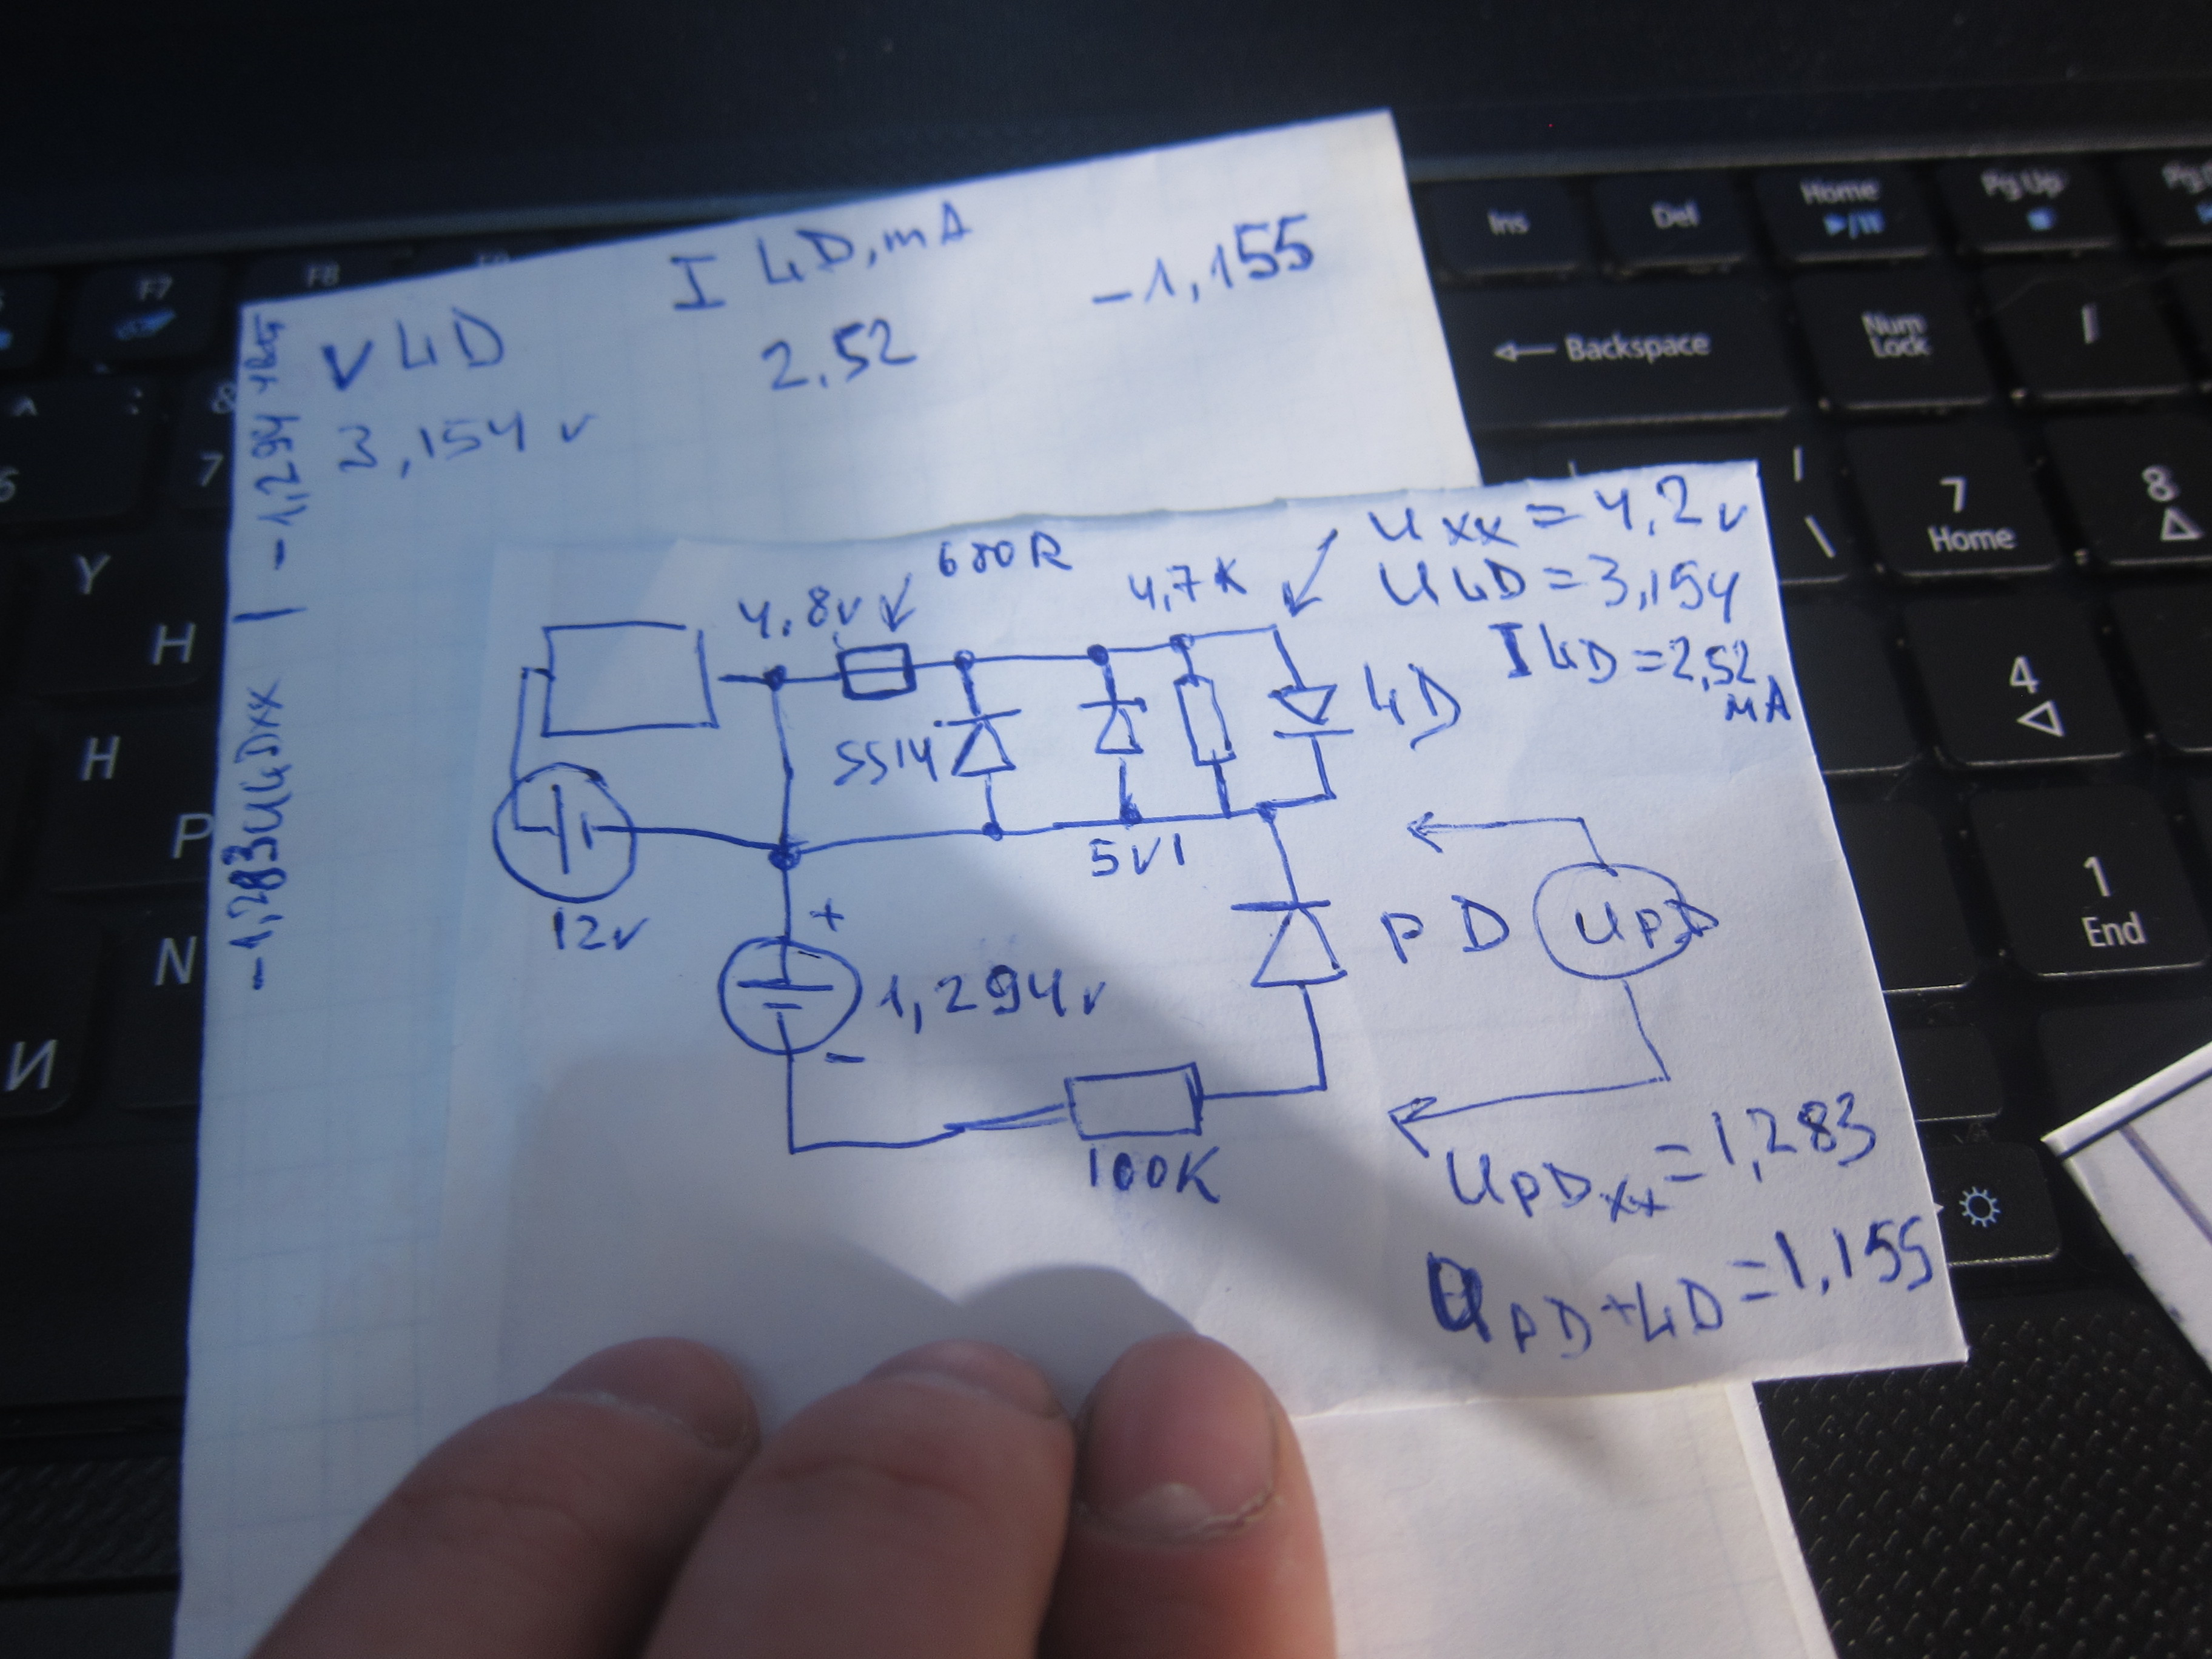 V LD
I LD, mA
-1,155
3,154 v
2,52
-1,283 U LD xx | -1,294
U xx = 4,2 v
U LD = 3,154
I LD = 2,52
mA
4,8v
680R
4,7K
SS14
LD
5V1
12v
+
1,294v
-
PD
UPD
100K
UPDxx = 1,283
UPD+LD = 1,155
F7
F8
Ins
Del
Home
Pg Up
Backspace
Num
Lock
/
&
7
7
Home
8
6
Y
Н
4
H
Р
1
End
N
И
\